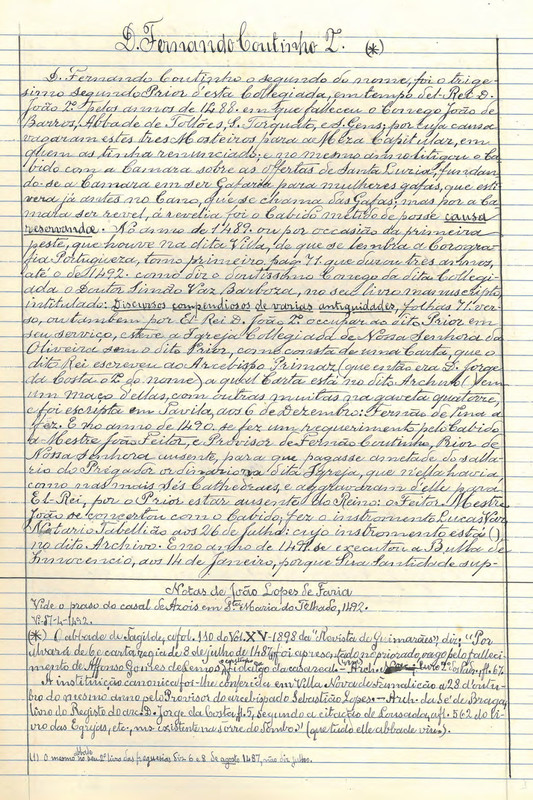 D. Fernando Coutinho 2. (*)
D. Fernando Coutinho o segundo do nome, foi o trige-
simo segundo Prior d'esta Collegiada, em tempo del-Rei D.
João 2º pelos annos de 1488. em que falleceu o Conego João de
Barros, Abbade de Tollões, S. Torquato, e S. Gens; por cuja causa
vagaram estes tres Mosteiros para a Meza Capitular, em
quem as tinha renunciado; e no mesmo anno litigou o Ca-
bido com a Camara sobre as offertas de Santa Luzia, fundan-
do-se a Camara em ser Gafaria para mulheres gafas, que esti-
vera já antes no Cano, que se chama das Gafas; mas por a Ca-
mara ser revel, á revelia foi o Cabido metido de posse causa
reservandæ. No anno de 1489. ou por occasião da primeira
peste, que houve na dita Villa, de que se lembra a Corogra-
fia Portugueza, tomo primeiro pag. 71. que durou tres annos,
até o de 1492. como diz o doutissimo Conego da dita Collegi-
ada o Doutor Simão Vaz Barboza, no seu livro manuscripto,
intitulado: Discursos compendiosos de varias antiguidades, folhas 71. ver-
so, ou tambem por El-Rei D. João 2º occupar ao dito Prior em
seu serviço, esteve a Igreja Collegiada de Nossa Senhora da
Oliveira sem o dito Prior, como consta de uma Carta, que o
dito Rei escreveu ao Arcebispo Primaz (que então era D. Jorge
da Costa o 2º do nome) a qual Carta está no dito Archivo (em
um maço d'ellas, com outras muitas na gaveta quatorze,
e foi escripta em Tavila, aos 6 de Dezembro: Fernão de Pina a
fez. E no anno de 1490. se fez um requerimento pelo Cabido
a Mestre João Feitor, e Provisor de Fernão Coutinho, Prior de
Nossa Senhora ausente, para que pagasse ametade do salla-
rio do Prégador ordinario da dita Igreja, que n'ella havia
como nas mais Sés Cathedraes, e aggravaram d'elle para
El-Rei, por o Prior estar ausente do Reino: o Feitor Mestre
João se concertou com o Cabido, fez o instromento Lucas Vaz,
Notario Tabellião aos 26 de julho: cujo instromento está
no dito Archivo. E no anno de 1491. se executou a Bulla de
Innocencio, aos 14 de Janeiro, porque Sua Santidade sup-
Notas de João Lopes de Faria
Vide o praso do casal de Azois em Stª Maria do Telhado, 1492.
(*) (abbade de Tagilde, a fol. 110 do Vol. XV-1898 da "Revista de Guimarães", diz: "Por
alvará de 6 e carta regia de 8 de julho de 1487 foi apresentado no priorado, vago pelo falleci-
mento de Affonso Gomes de Lemos, fidalgo da casa real.
A instituição canonica foi-lhe conferida em Villa Nova de Famalicão a 28 d'outu-
bro do mesmo anno pelo Provisor do arcebispado Sebastião Lopes. — Arch. da Sé de Braga,
livro do Registo do arc. D. Jorge da Costa, fl. 5, segundo a citação de Lousada, a fl. 562 do li-
vro das Egrejas, etc., ms. existente na Torre do Tombo." (que tudo elle abbade viu).
(1) O mesmo abbade no seu 2º livro das freguesias diz 6 e 8 de agosto 1487, não diz julho.